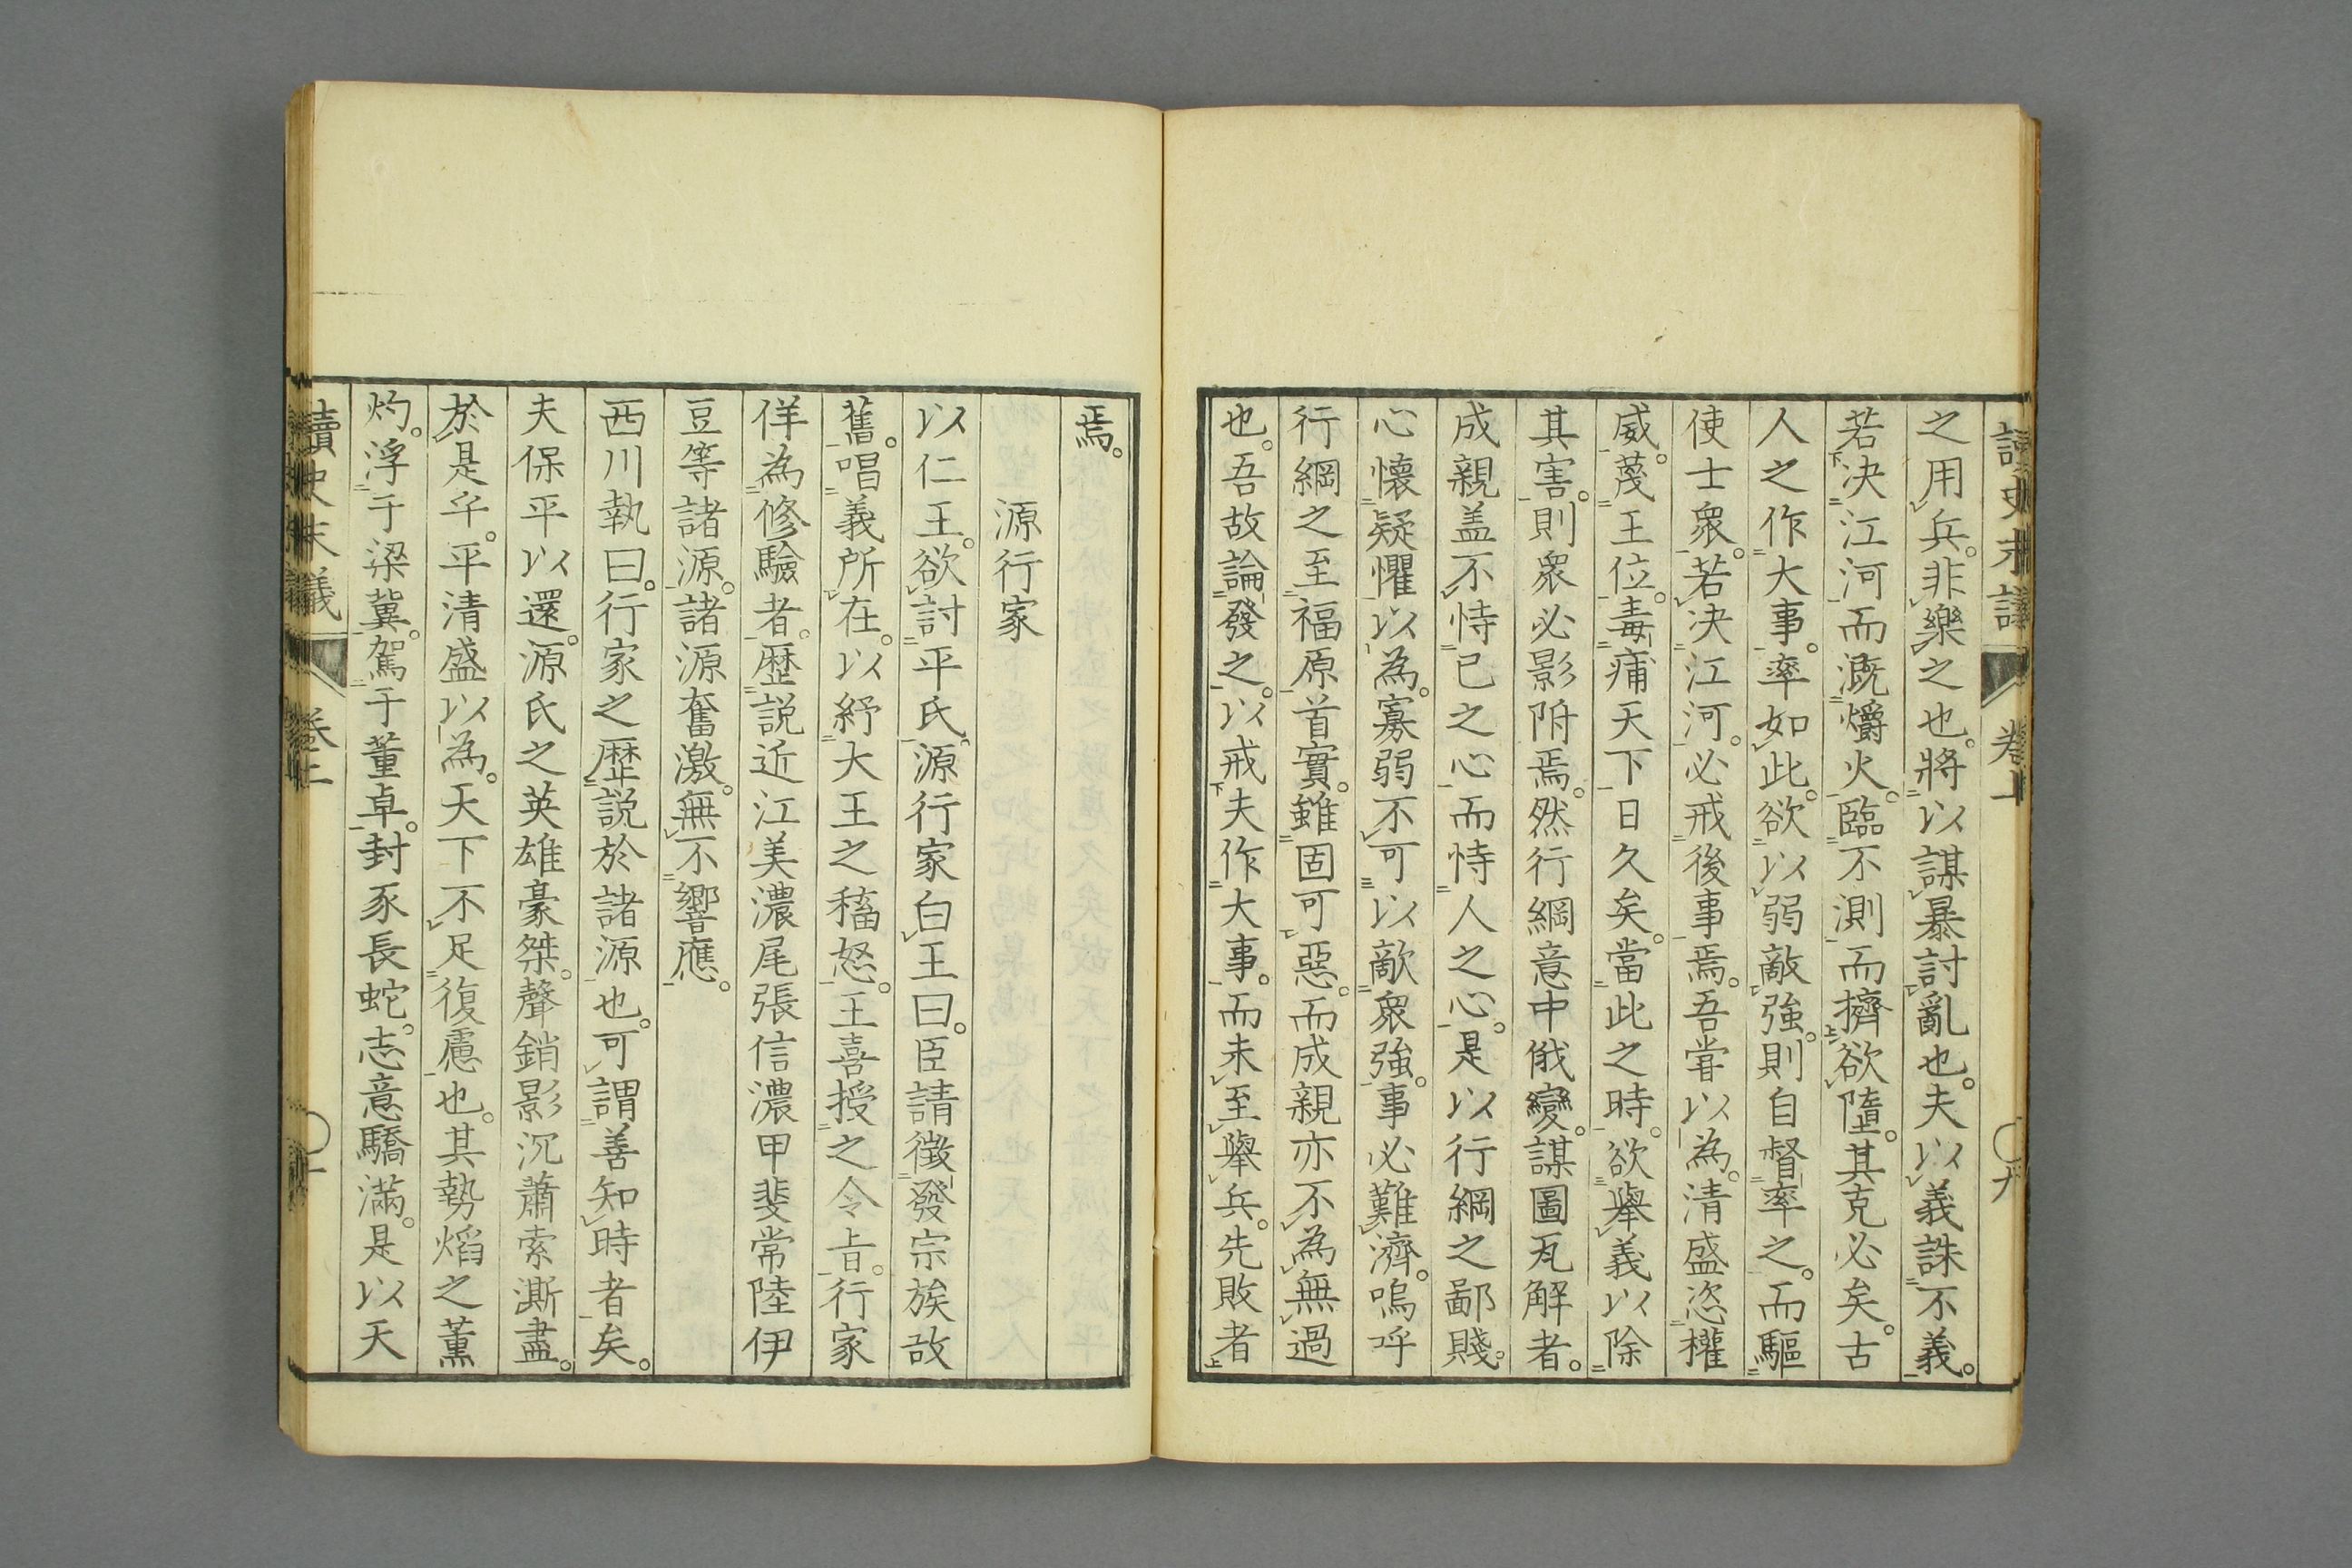 之用兵。非樂之也。將以謀暴討亂也。夫以義誅不義。
若決江河而溉爝火。臨不測而擠欲墮。其克必矣。古
人之作大事。率如此。欲以弱敵強。則自督率之。而驅
使士衆。若決江河。必戒後事焉。吾嘗以為。清盛恣權
威。蔑王位。毒痡天下日久矣。當此之時。欲擧義以除
其害。則衆必影附焉。然行綱意中俄變。謀圖瓦解者。
成親盖不恃已之心而恃人之心。是以行綱之鄙賤。
心懐疑懼以為。寡弱不可以敵衆強。事必難濟。嗚呼
行綱之至福原首實。雖固可惡。而成親亦不為無過
也。吾故論發之。以戒夫作大事。而未至擧兵。先敗者
焉。
源行家
以仁王。欲討平氏。源行家白王曰。臣請徴發宗族故
舊。唱義所在。以紓大王之稸怒。王喜授之令旨。行家
佯為修驗者。歷説近江美濃尾張信濃甲斐常陸伊
豆等諸源。諸源奮激。無不響應。
西川執曰。行家之歷説於諸源也。可謂善知時者矣。
夫保平以還。源氏之英雄豪桀。聲銷影沉蕭索澌盡。
於是乎。平清盛以為。天下不足復慮也。其勢焰之薰
灼。浮于梁冀。駕于董卓。封豕長蛇。志意驕滿。是以天
讀史末議 卷上